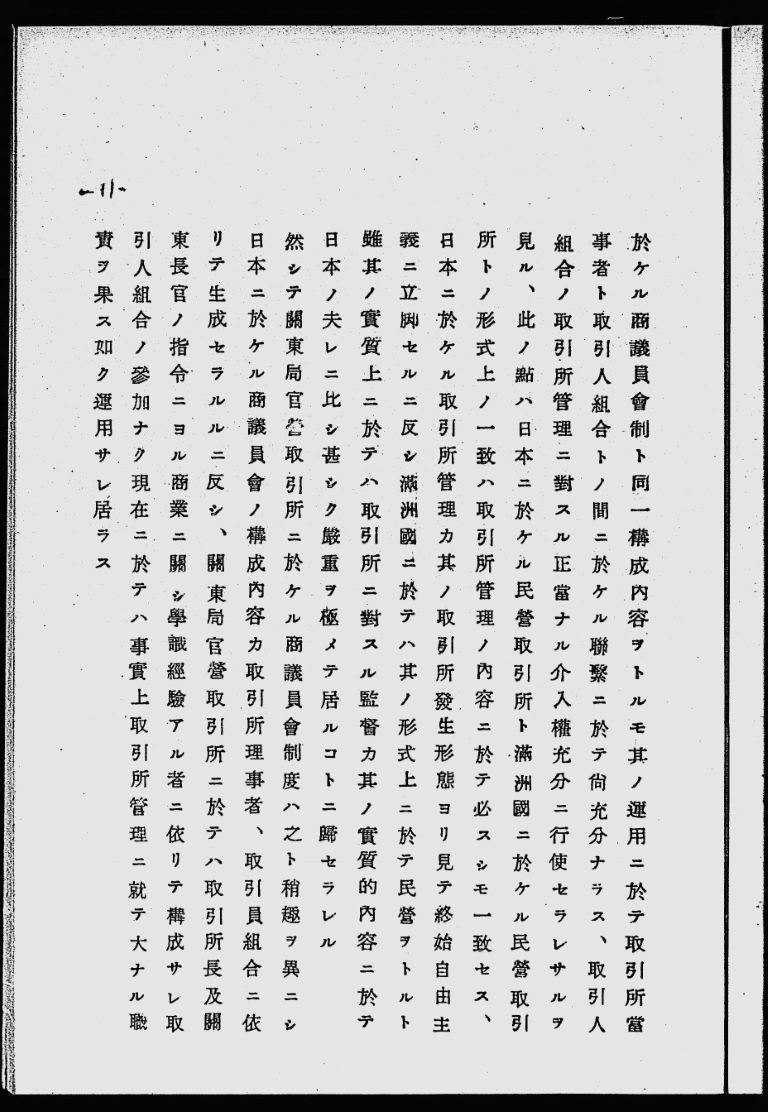 於ケル商議員會制ト同一構成內容ヲトルモ其ノ運用ニ於テ取引所當
事者ト取引人組合トノ間ニ於ケル聯繫ニ於テ尙充分ナラス、取引人
組合ノ取引所管理ニ對スル正當ナル介入權充分ニ行使セラレサルヲ
見ル、此ノ點ハ日本ニ於ケル民營取引所ト滿洲國ニ於ケル民營取引
所トノ形式上ノ一致ハ取引所管理ノ內容ニ於テ必スシモ一致セス、
日本ニ於ケル取引所管理カ其ノ取引所發生形態ヨリ見テ終始自由主
義ニ立脚セルニ反シ滿洲國ニ於テハ其ノ形式上ニ於テ民營ヲトルト
雖其ノ實質上ニ於テハ取引所ニ對スル監督カ其ノ實質的內容ニ於テ
日本ノ夫レニ比シ甚シク嚴重ヲ極メテ居ルコトニ歸セラレル
然シテ關東局官營取引所ニ於ケル商議員會制度ハ之ト稍趣ヲ異ニシ
日本ニ於ケル商議員會ノ構成內容カ取引所理事者、取引員組合ニ依
リテ生成セラルルニ反シ、關東局官營取引所ニ於テハ取引所長及關
東長官ノ指令ニヨル商業ニ關シ學識經驗アル者ニ依リテ構成サレ取
引人組合ノ參加ナク現在ニ於テハ事實上取引所管理ニ就テ大ナル職
實ヲ果ス如ク運用サレ居ラス
-11-